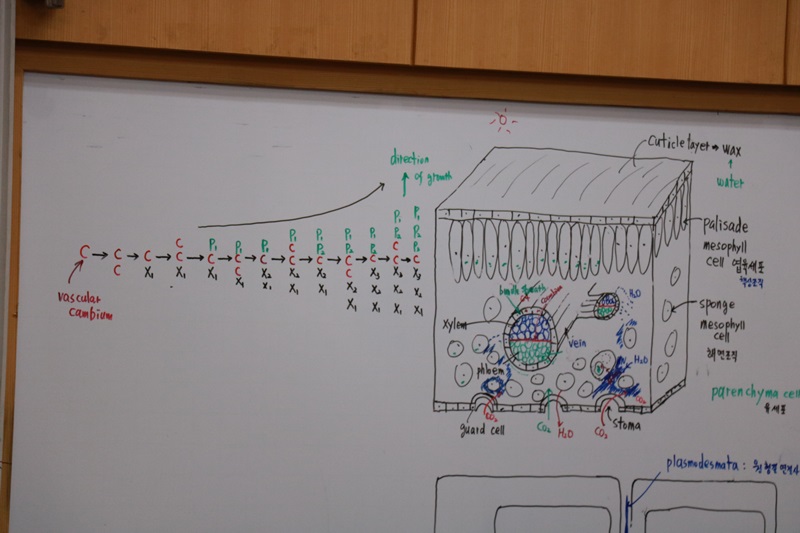 cuticle layer → wax
↑
water
direction
of growth
P₁
P₁ P₁ P₁ P₂
C P₁ P₁ P₁ C P₁ P₁ P₂ C P₃
C → C → C → C → C → C → C → C → C → C → C → C
C X₁ X₁ X₁ C X₂ X₂ C X₂ X₃ X₃
X₁ X₁ X₁ X₁ X₂ X₂ X₂
X₁ X₁ X₁
vascular
cambium
palisade
mesophyll
cell 엽육세포
책상조직
bundle sheath
cambium
H₂O
xylem
vein
sponge
mesophyll
cell
해면조직
H₂O
phloem
parenchyma cell
육세포
guard cell
CO₂
CO₂
H₂O
CO₂
CO₂
stoma
plasmodesmata :